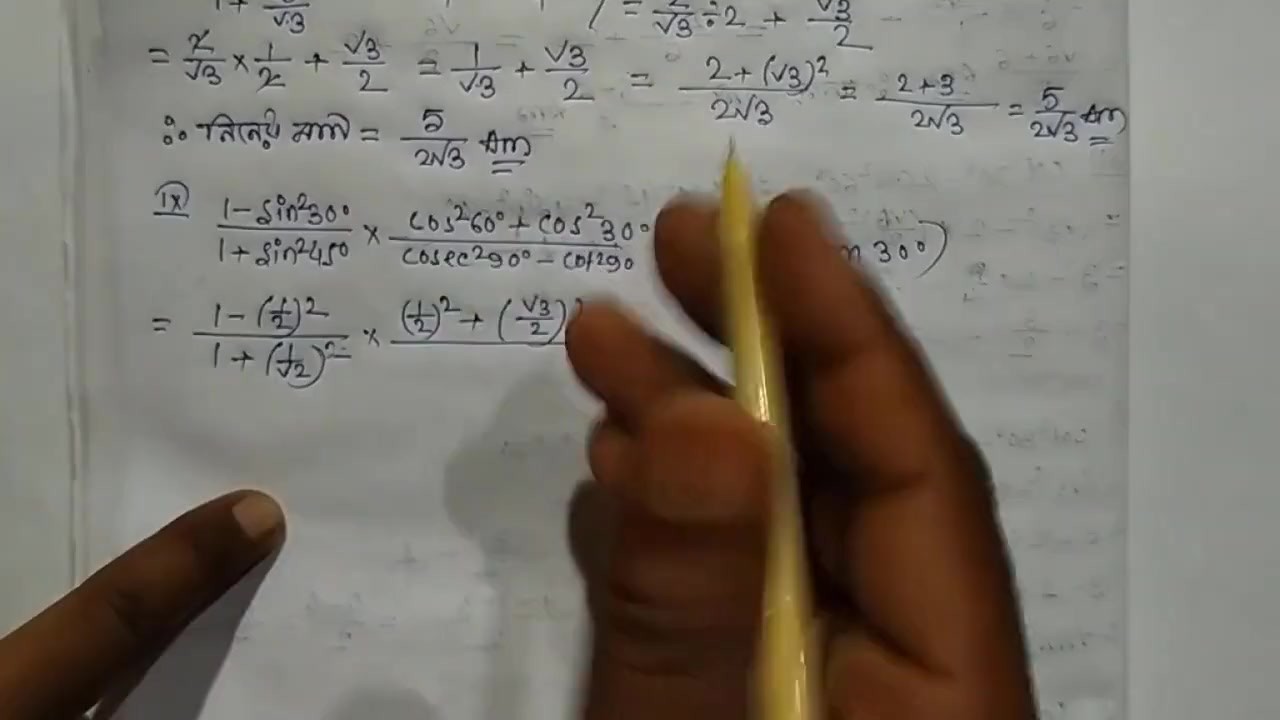 = 2/√3 ÷ 2 + √3/2
= 2/√3 × 1/2 + √3/2 = 1/√3 + √3/2 = 2+(√3)²/2√3 = 2+3/2√3 = 5/2√3 Ans
∴ নির্নেয় মান = 5/2√3 Ans
ix 1-sin²30°/1+sin²45° × cos²60°+cos²30°/cosec²90°-cot²90 30°)
= 1-(1/2)²/1+(1/√2)² × (1/2)²+(√3/2)²